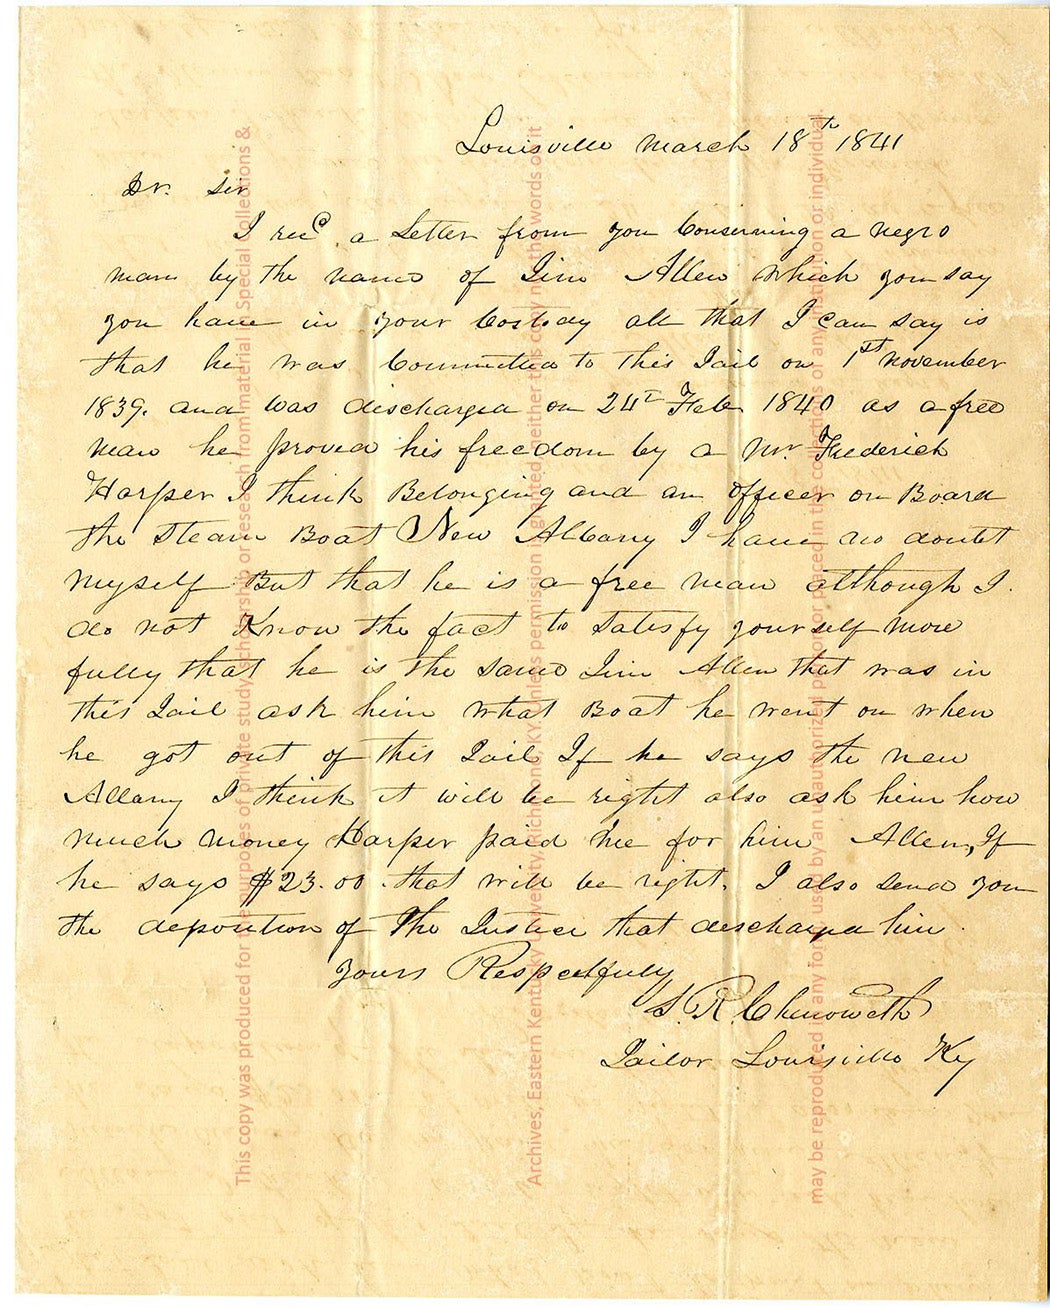 Louisville March 18th 1841
Dr. Sir
I recd. a Letter from you Conserning a negro
man by the name of Jim Allen which you say
you have in your Costoday all that I can say is
that he was Committed to this Jail on 1st November
1839. and was discharged on 24th Feb 1840 as a free
man he proved his freedom by a Mr. Frederick
Harper I think Belonging and an officer on Board
the Steam Boat New Albany I have no doubt
myself But that he is a free man although I.
do not Know the fact to Satisfy yourself more
fully that he is the same Jim Allen that was in
this Jail ask him what Boat he went on when
he got out of this Jail If he says the new
Allany I think it will be right also ask him how
much money Harper paid me for him Allen, If
he says $23.00 that will be right. I also send you
the deposition of the Justice that descharged him.
yours Respectfuly
S. R. Chenoweth
Jailor Louisville Ky
This copy was produced for the purposes of private study, scholarship or research from material in Special Collections &
Archives, Eastern Kentucky University, Richmond, KY. Unless permission is granted, neither this copy nor the words on it
may be reproduced in any form, used by an unauthorized person or placed in the collections of any institution or individual.